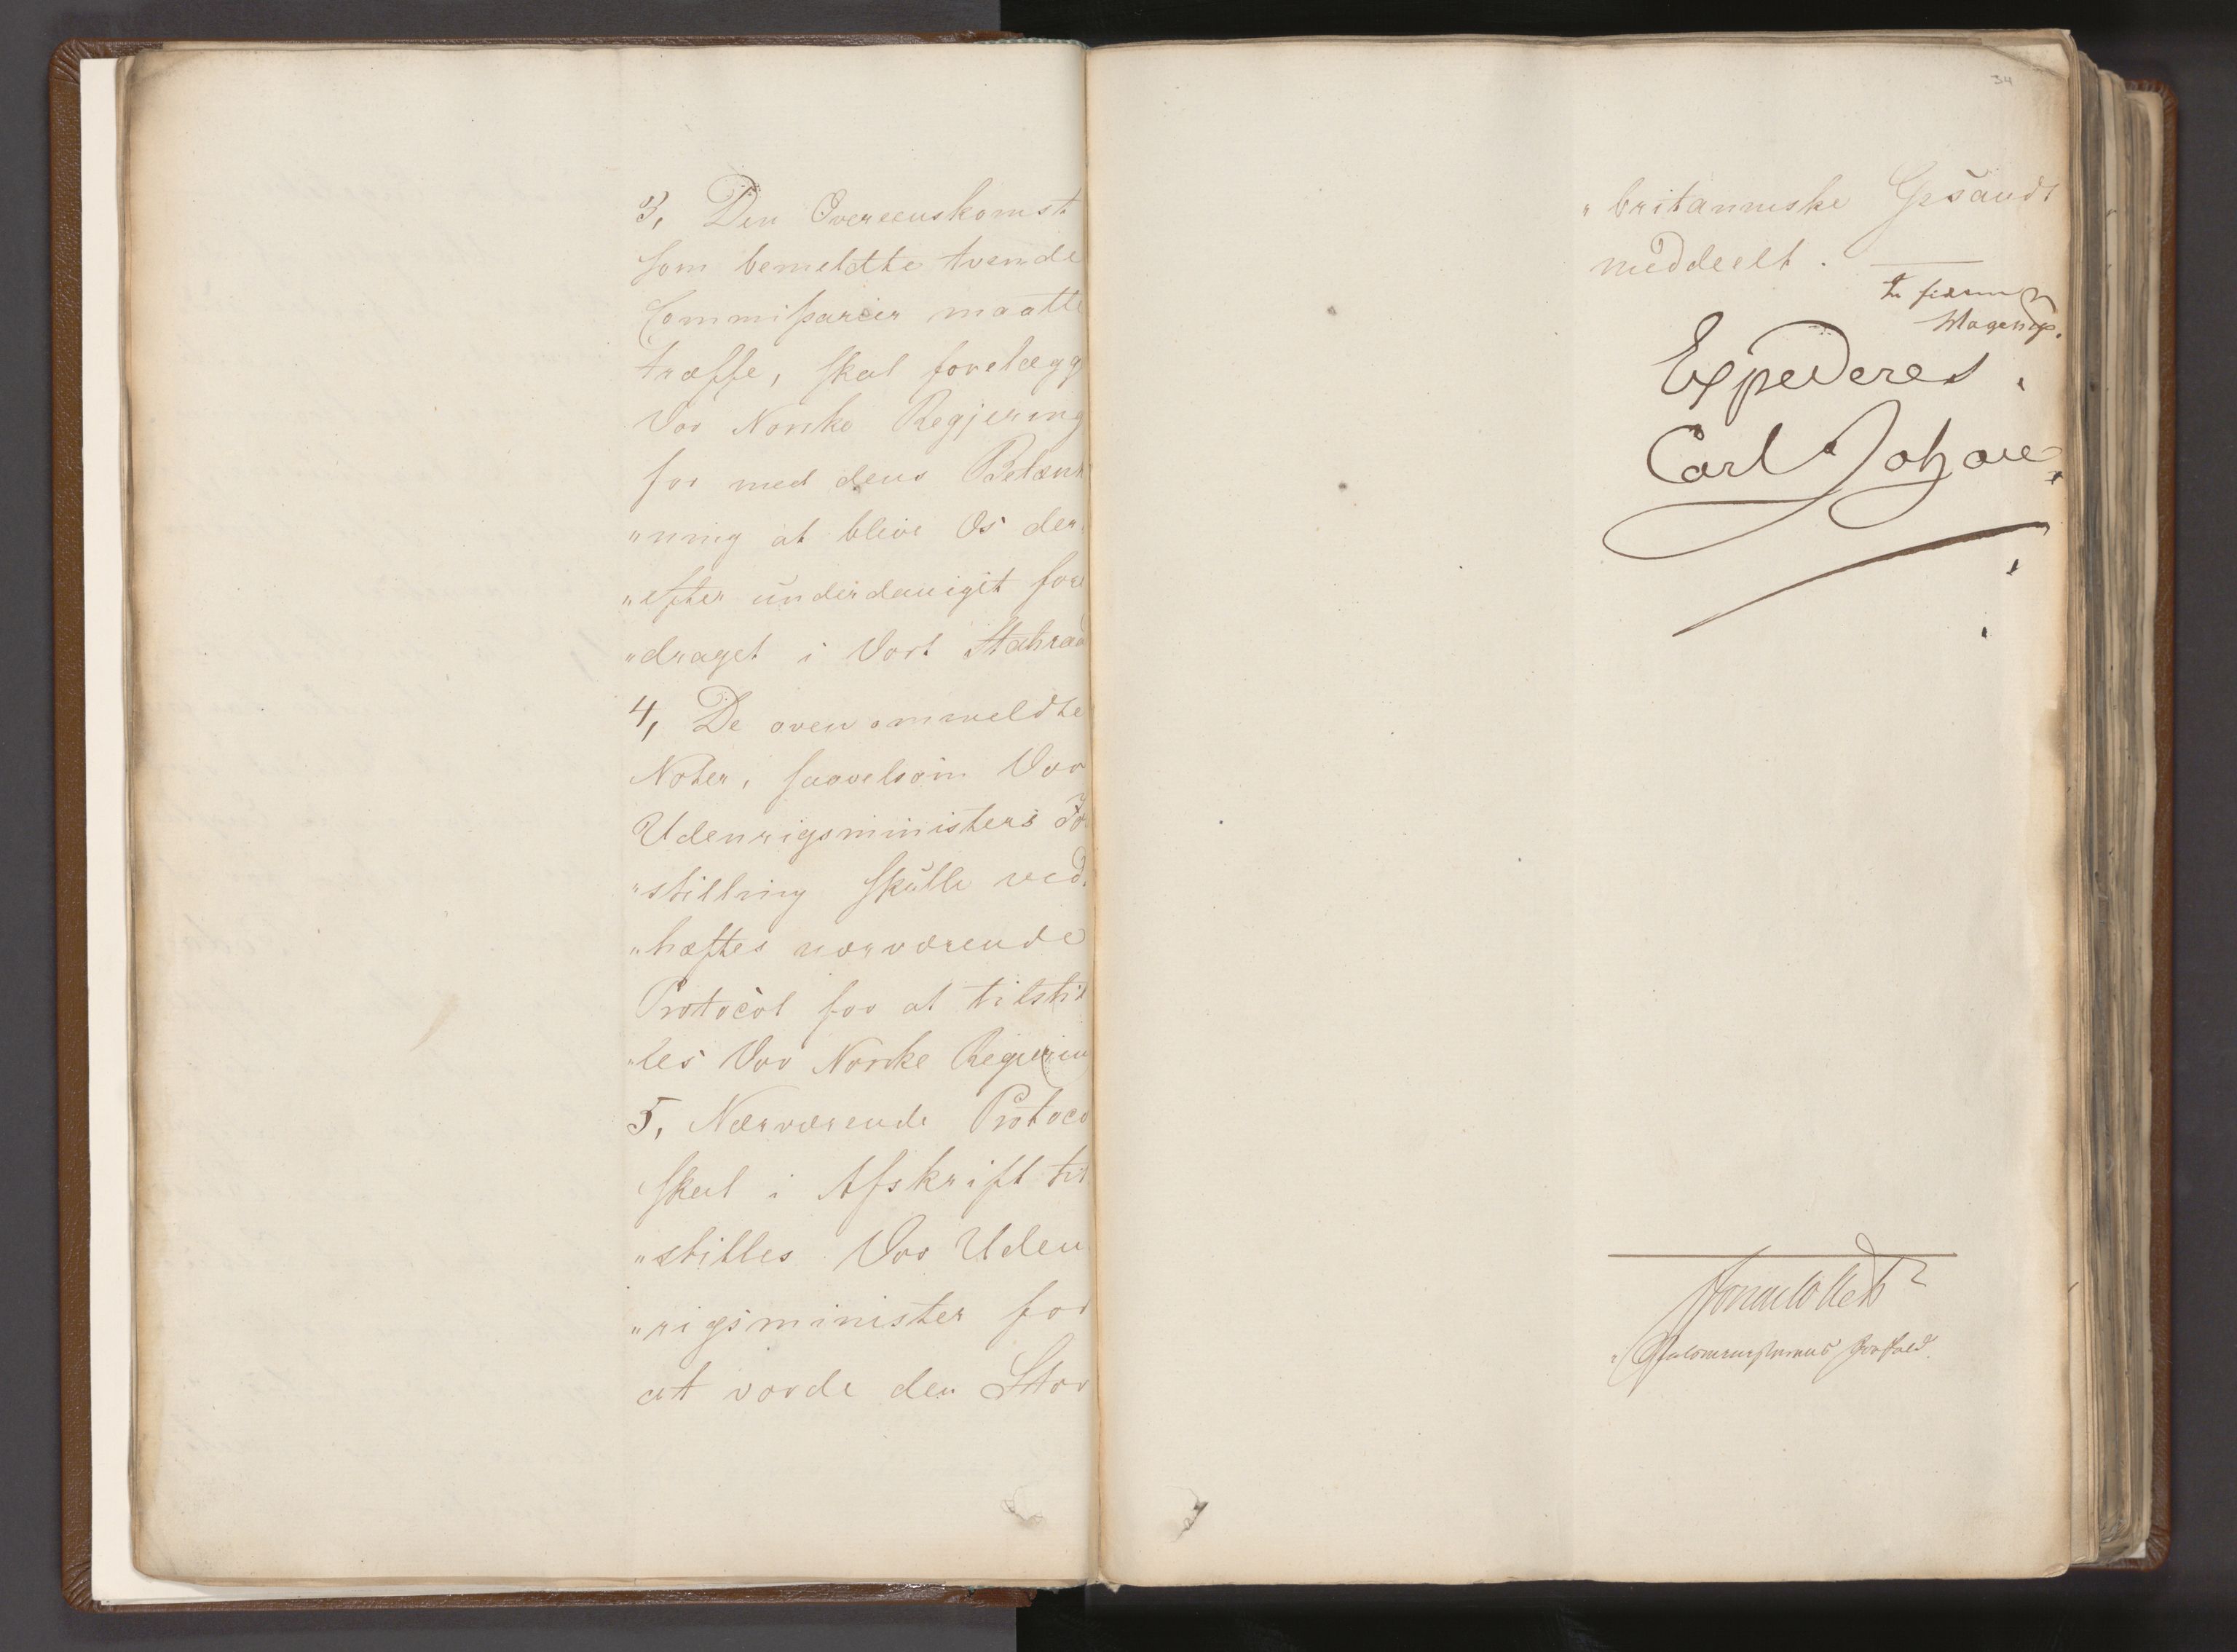 3, Den Overeenskomst
som bemeldte tvende
Commissarier maatte
træffe, skal forelægg
Vor Norske Regjering
for med dens Betænk
"ning at blive Os der
"efter underdanigst fore
"draget i Vort Statsraad
4, De ovenommeldte
Noter, saavelsom Vor
Udenrigsministers Fo
"stilling skulle ved
"hæftes nærværende
Protocol for at tilstil
"les Vor Norske Regjerin
5, Nærværende Protoco
skal i Afskrift til
"stilles Vor Uden
"rigsminister for
at vorde den Stor
34
"britanniske Gesandt
meddeelt.
In fidem
Expederes.
Carl Johan